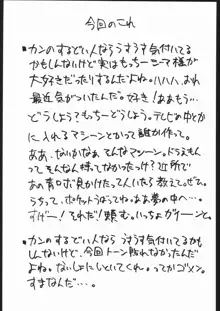 今回のこれ
・カンのするどい人ならうすうす気付いてる
かもしんないけど実はもっちーって様が
大好きだったりするんだよね。ハハハ、おれ
最近気がついたんだ。好き！ああもう…
どうしよう？もっちーどうしよう。テレビの中とか
に入れるマシーンとかって誰か作って。
ああ、ないかなぁ、そんなマシーン。ドラえもん
って そんなん持ってなかったっけ？近所で
あの青ロボ見かけたって人いたら教えて。ぜってぇ。
うちって、ポケットうばってね。ああ夢の中へ…。
すげー！それだ！頼む。いっちょガツーンと。
・カンのするどい人なら うすうす気付いてるかも
しんないけど、今回トーン貼れなかったんだ
よね。ないしょにしといてくれ。ってかゴメン。
すまなんだ…。